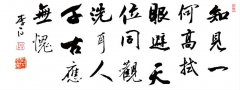 知見一
何高拭
眼避天
位同觀
洗耳人
千古應
無愧